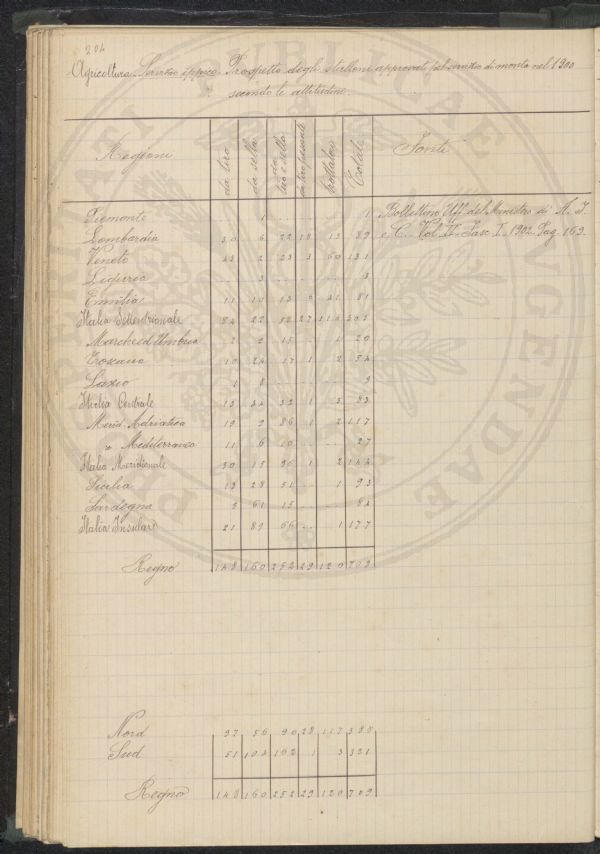 204
Agricoltura. Servizio ippico. Prospetto degli stalloni approvati pel servizio di monta nel 1900
secondo le attitudini.
Regioni da tiro da sella da tiro e sella da tiro pesante trottatori Totale Fonti
Piemonte 1 1 Bollettino Uff. del Ministro di A. I.
Lombardia 30 6 22 18 13 89 e C. Vol. II. Fasc. I. 1902. Pag. 169.
Veneto 43 2 23 3 60 131
Liguria 3 3
Emilia 11 10 13 6 41 81
Italia Settentrionale 84 22 58 27 114 305
Marche ed Umbria 2 2 15 1 20
Toscana 10 24 17 1 2 54
Lazio 1 8 9
Italia Centrale 13 34 32 1 3 83
Merid. Adriatica 19 9 86 1 2 117
" Mediterranea 11 6 10 27
Italia Meridionale 30 15 96 1 2 144
Sicilia 13 28 51 1 93
Sardegna 8 61 15 84
Italia Insulare 21 89 66 1 177
Regno 148 160 252 29 120 709
Nord 97 56 90 28 117 388
Sud 51 104 162 1 3 321
Regno 148 160 252 29 120 709